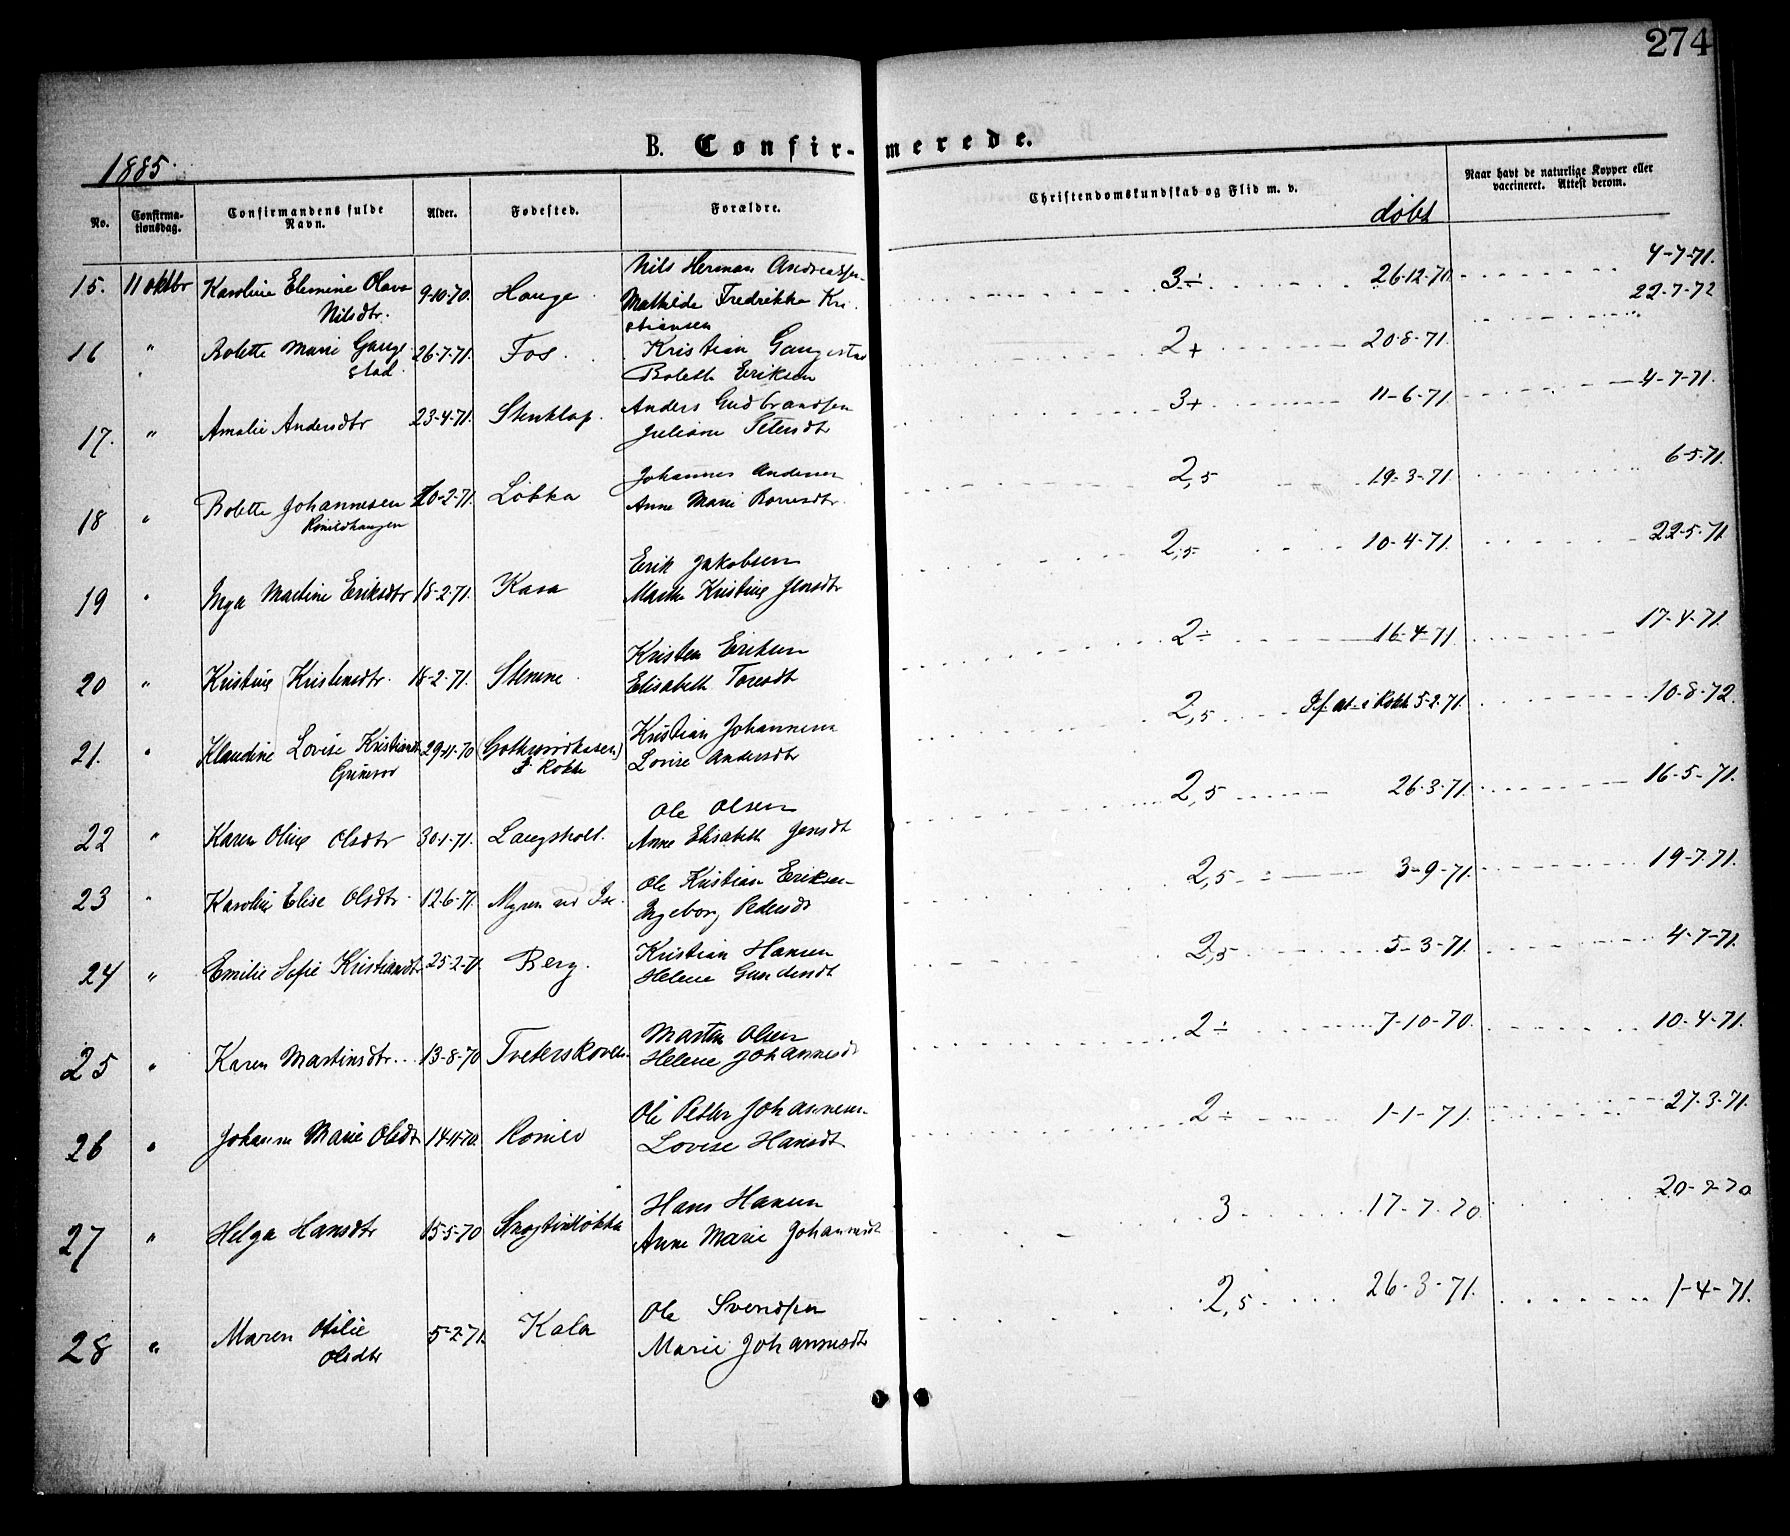 274
B. Confir-merede.
1885.
No. Confirmationsdag. Confirmandens fulde Navn. Alder. Fødested. Forældre. Christendomskundskab og Flid m. v. døbt Naar havt de naturlige Kopper eller vaccineret. Attest derom.
15. 11 oktbr Karoline Elemine Olava 9-10-70. Hauge Nils Herman Andreassen 3÷ 26-12-70. 4-7-71.
Nilsdtr. Mathilde Fredrikke Kri- 22-7-72
stiansen
16 " Bolette Marie Gauge- 26-7-71. Fos. Kristian Gaugestad 2+ 20-8-71.
stad. Boleth Eriksen
17. " Amalie Andersdtr 23-4-71. Stenklap. Anders Gudbrandsen 3+ 11-6-71. 4-7-71.
18 " Bolette Johannesen 20-2-71. Løkka Johannes Andersen 2,5 19-3-71 6-5-71.
Anne Marie
19 " Inga Martine Eriksdtr 18-2-71. Kasa Erik Jakobsen 2,5 10-4-71. 22-5-71.
Marthe Kristine Jensdtr
20 " Kristine Kristensdtr. 18-2-71. Stenene Kristen Eriksen 2÷ 16-4-71 17-4-71.
Elisabeth Toresdt
21. " Klaudine Lovise Kristiansdt 29-11-70 Kristian Johannesen 2,5 5-2-71. 10-8-72.
i Rokke Lovise Andersdtr
22 " Karen Oline Olsdtr 30-1-71. Langsholt. Ole Olsen 2,5 26-3-71. 16-5-71.
Anne Elisabeth Jensdt
23 " Karoline Elise Olsdtr. 12-6-71. Myren vd Ise. Ole Kristian Eriksen 2,5 3-9-71. 19-7-71.
Ingeborg Pedersdt
24 " Emilie Sofie Kristiansdtr 25-2-71. Berg. Kristian Hansen 2,5 5-3-71. 4-7-71.
Helene Gundersdt
25 " Karen Martinsdtr. 13-8-70 Tveterskoven Martin Olsen 2÷ 7-10-70. 10-4-71.
Helene Johannesdt
26 " Johanne Marie Olsdtr 14-11-70. Ole Petter Johannesen 2÷ 1-1-71. 27-3-71.
Lovise Hansdt
27 " Helga Hansdtr 15-5-70 Hans Hansen 3 17-7-70. 20-7-70
Anne Marie Johannesdt
28 " Maren Otilie 5-2-71. Kala Ole Svendsen 2,5 26-3-71. 1-4-71.
Olsdtr Marie Johannesdtr